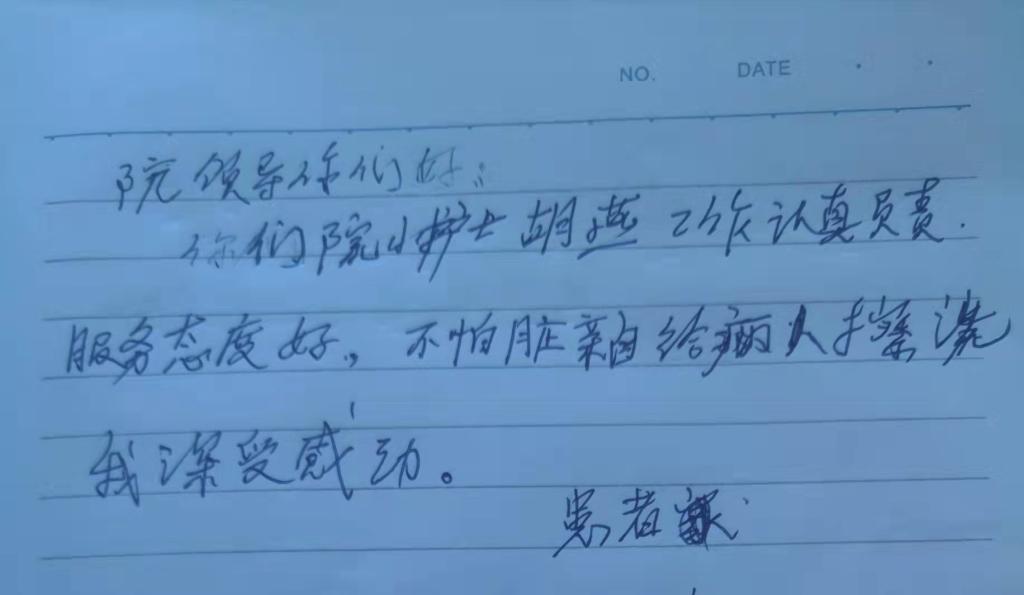 NO. DATE
院领导你们好:
你们院小护士胡燕工作认真负责.
服务态度好,不怕脏亲自给病人擦洗
我深受感动。
患者家